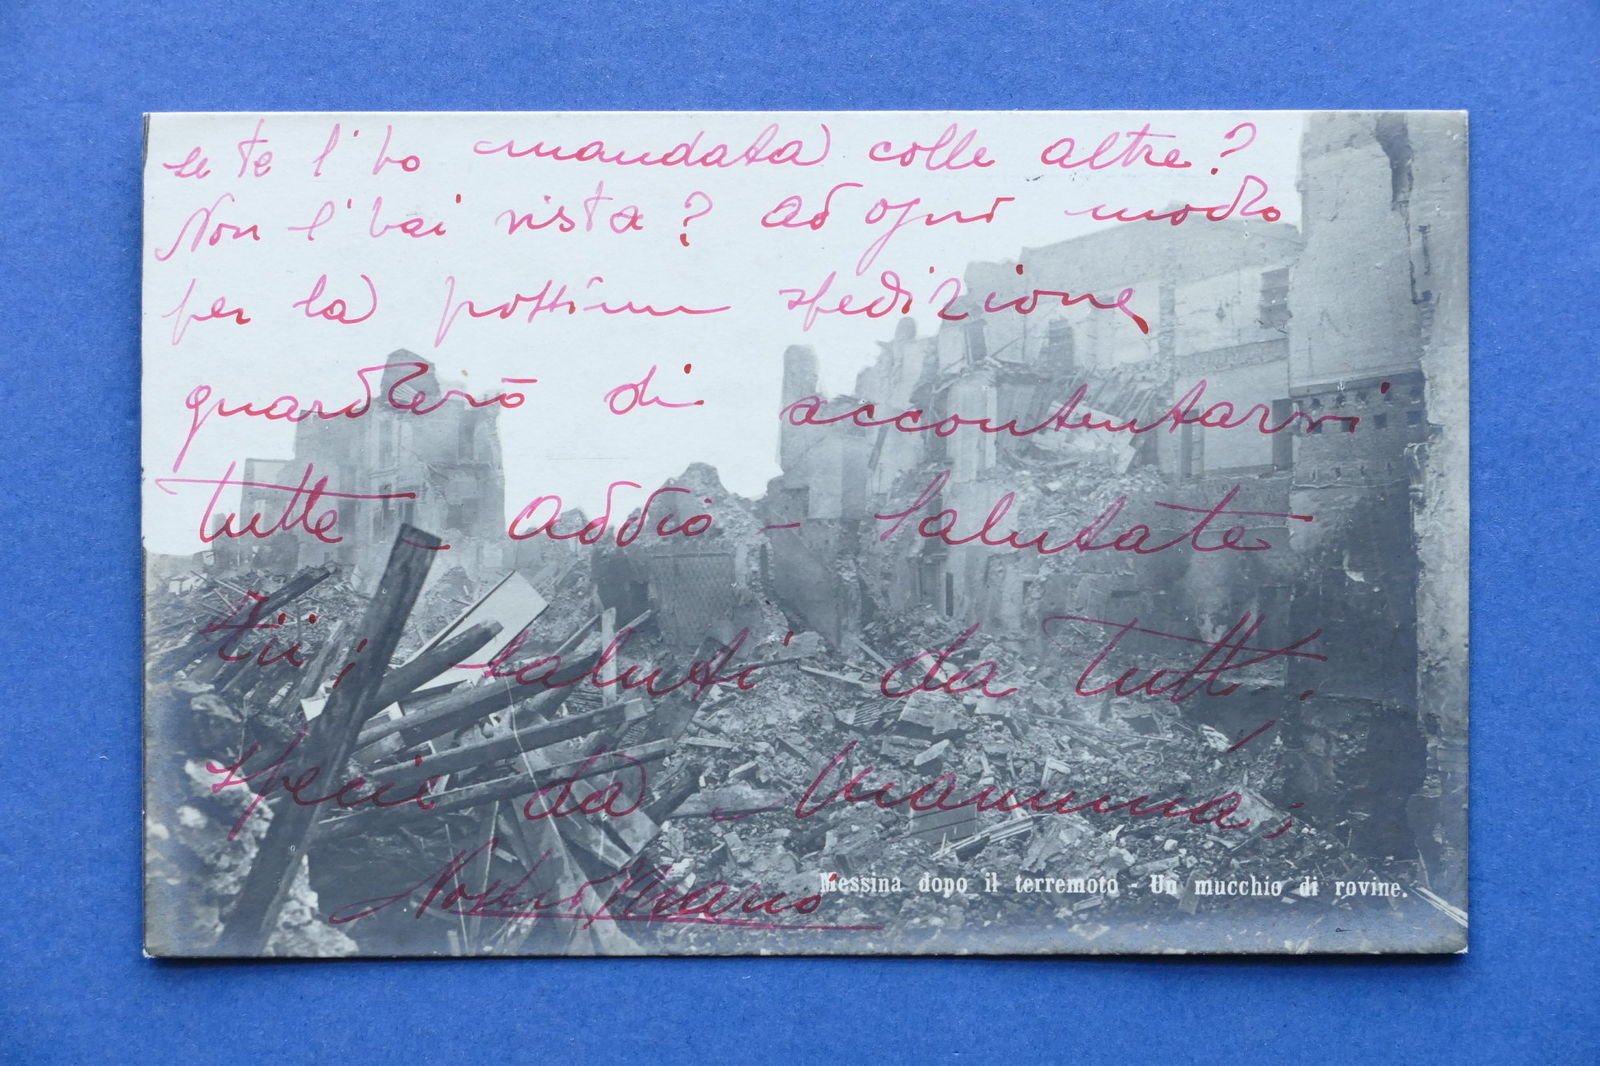 se te l'ho mandata colle altre?
Non l'hai vista? Ad ogni modo
per la prossima spedizione
guarderò di accontentarvi
tutte - Addio - Salutate
Zii; saluti da tutti,
specie da Mamma;
Vostro
Messina dopo il terremoto - Un mucchio di rovine.